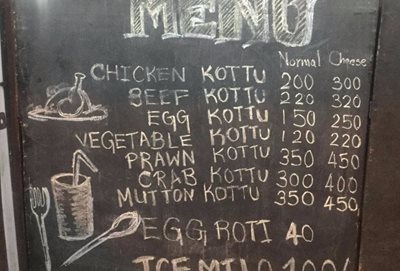 MENU
Normal Cheese
CHICKEN KOTTU 200 300
BEEF KOTTU 220 320
EGG KOTTU 150 250
VEGETABLE KOTTU 120 220
PRAWN KOTTU 350 450
CRAB KOTTU 300 400
MUTTON KOTTU 350 450
EGG ROTI 40
ICE MILO 100/